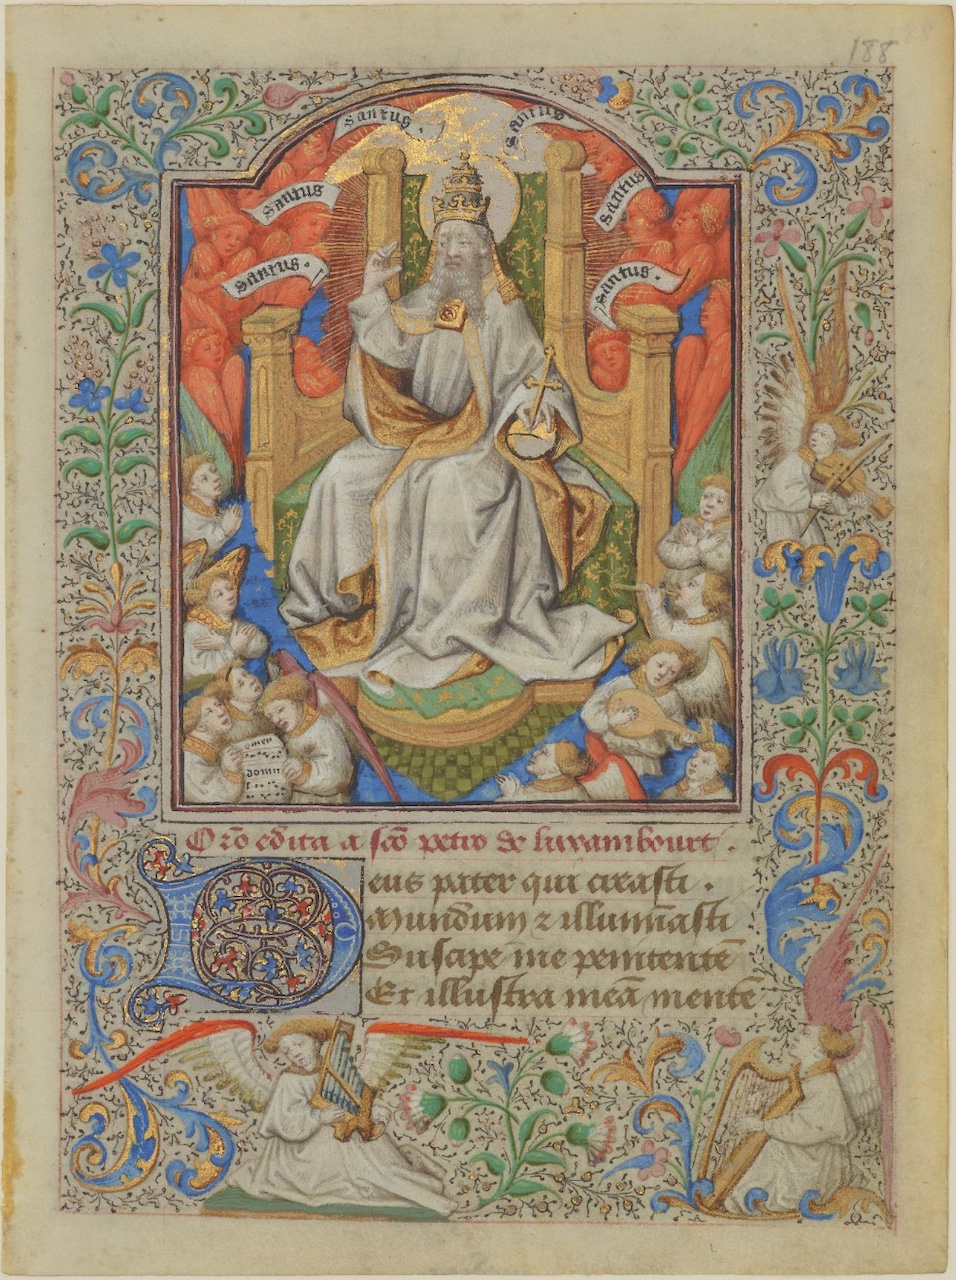 188
sanctus.
sanctus
sanctus
sanctus
sanctus.
sanctus.
domin
Oro̅ edita a sc̅o petro de luxambourt.
Deus pater qui creasti.
Mundum ⁊ illumina̅sti
Suscipe me penitente̅
Et illustra mea̅ mente̅